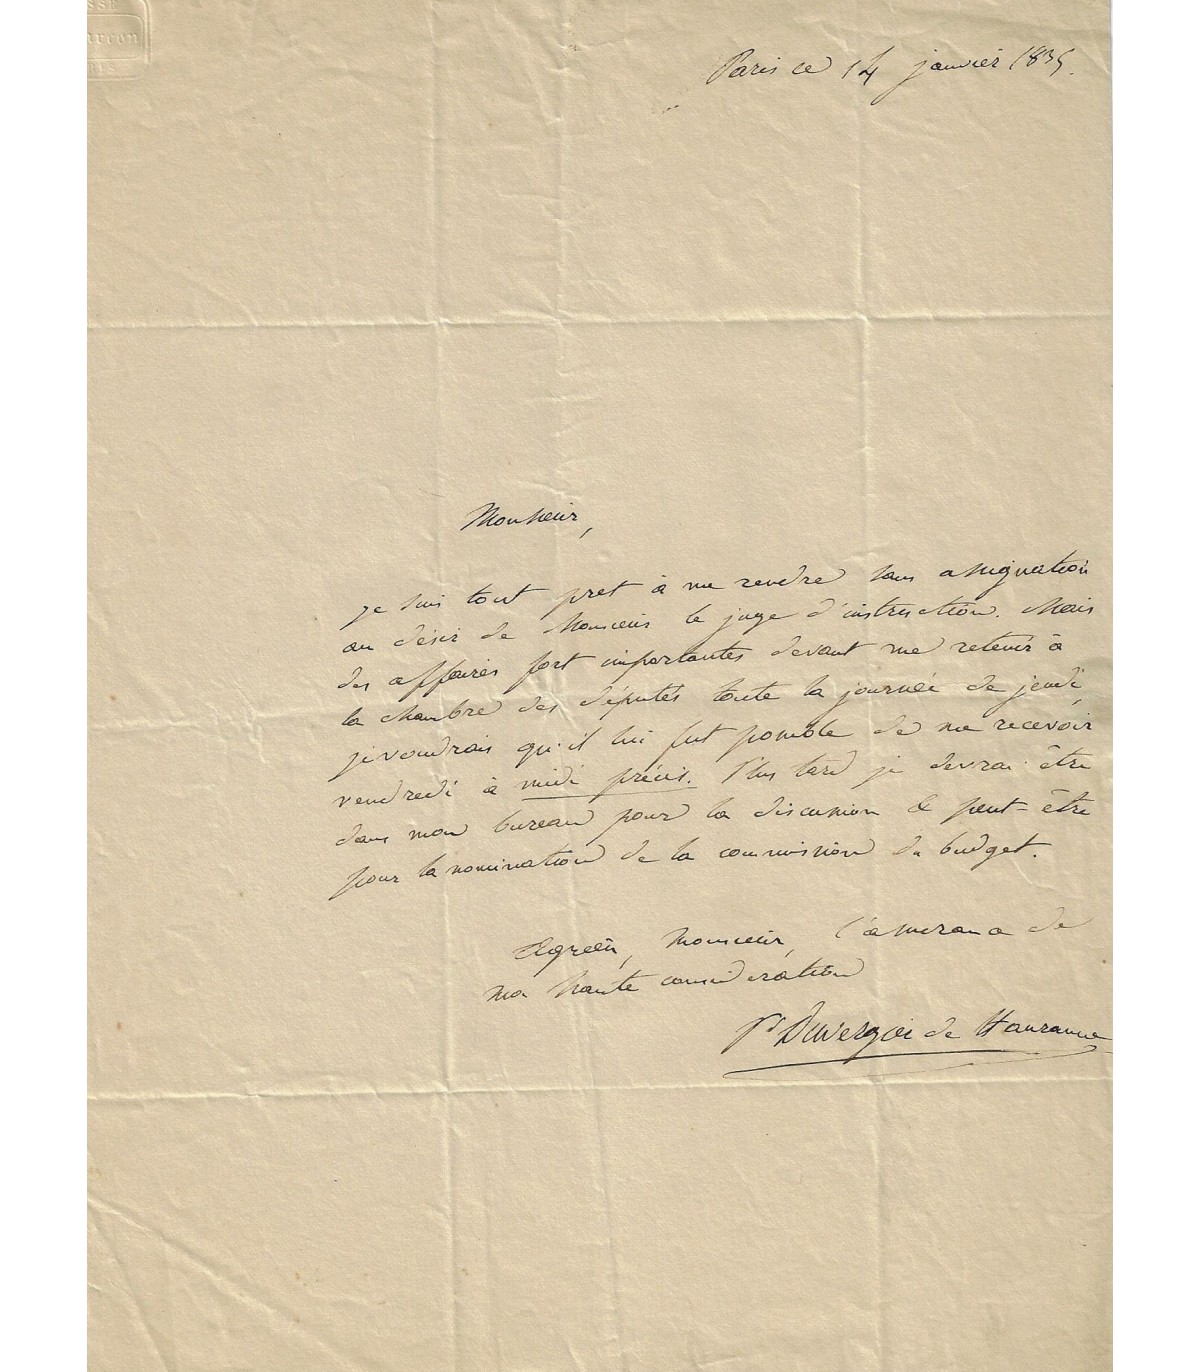 Paris ce 14 janvier 1835.
Monsieur,
je suis tout pret à me rendre sans assignation
au désir de Monsieur le juge d'instruction. Mais
des affaires fort importantes devant me retenir à
la chambre des députés toute la journée de jeudi,
je voudrais qu'il lui fut possible de me recevoir
vendredi à midi précis. Plus tard je devrai être
dans mon bureau pour la discussion & peut-être
pour la nomination de la commission du budget.
Agréez, monsieur, l'assurance de
ma haute considération
Pr Duvergier de Hauranne